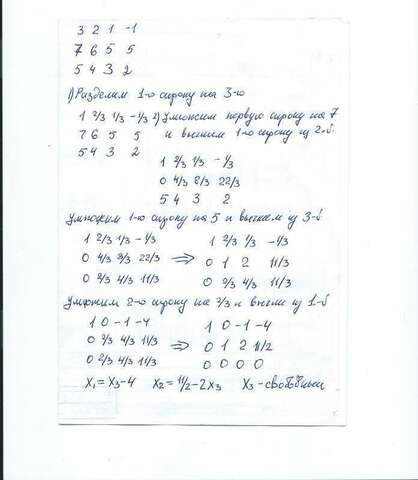 3 2 1 -1
7 6 5 5
5 4 3 2
1) Разделим 1-ю строку на 3-ю
1 2/3 1/3 -1/3 2) Умножим первую строку на 7
7 6 5 5 и вычтем 1-ю строку из 2-й.
5 4 3 2
1 2/3 1/3 -1/3
0 4/3 8/3 22/3
5 4 3 2
Умножим 1-ю строку на 5 и вычтем из 3-й
1 2/3 1/3 -1/3 1 2/3 1/3 -1/3
0 4/3 8/3 22/3 ⇒ 0 1 2 11/3
0 2/3 4/3 11/3 0 2/3 4/3 11/3
Умножим 2-ю строку на 2/3 и вычтем из 1-й
1 0 -1 -4 1 0 -1 -4
0 2/3 4/3 11/3 ⇒ 0 1 2 11/2
0 2/3 4/3 11/3 0 0 0 0
X₁ = X₃-4 X₂ = 11/2-2X₃ X₃ - свободный